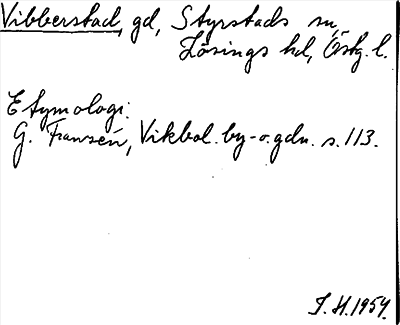 Vibberstad, gd, Styrstads sn,
Lösings hd, Östg. l.
Etymologi:
G. Franzén, Vikbol. by- o. gdn. s. 113.
I. H. 1954.